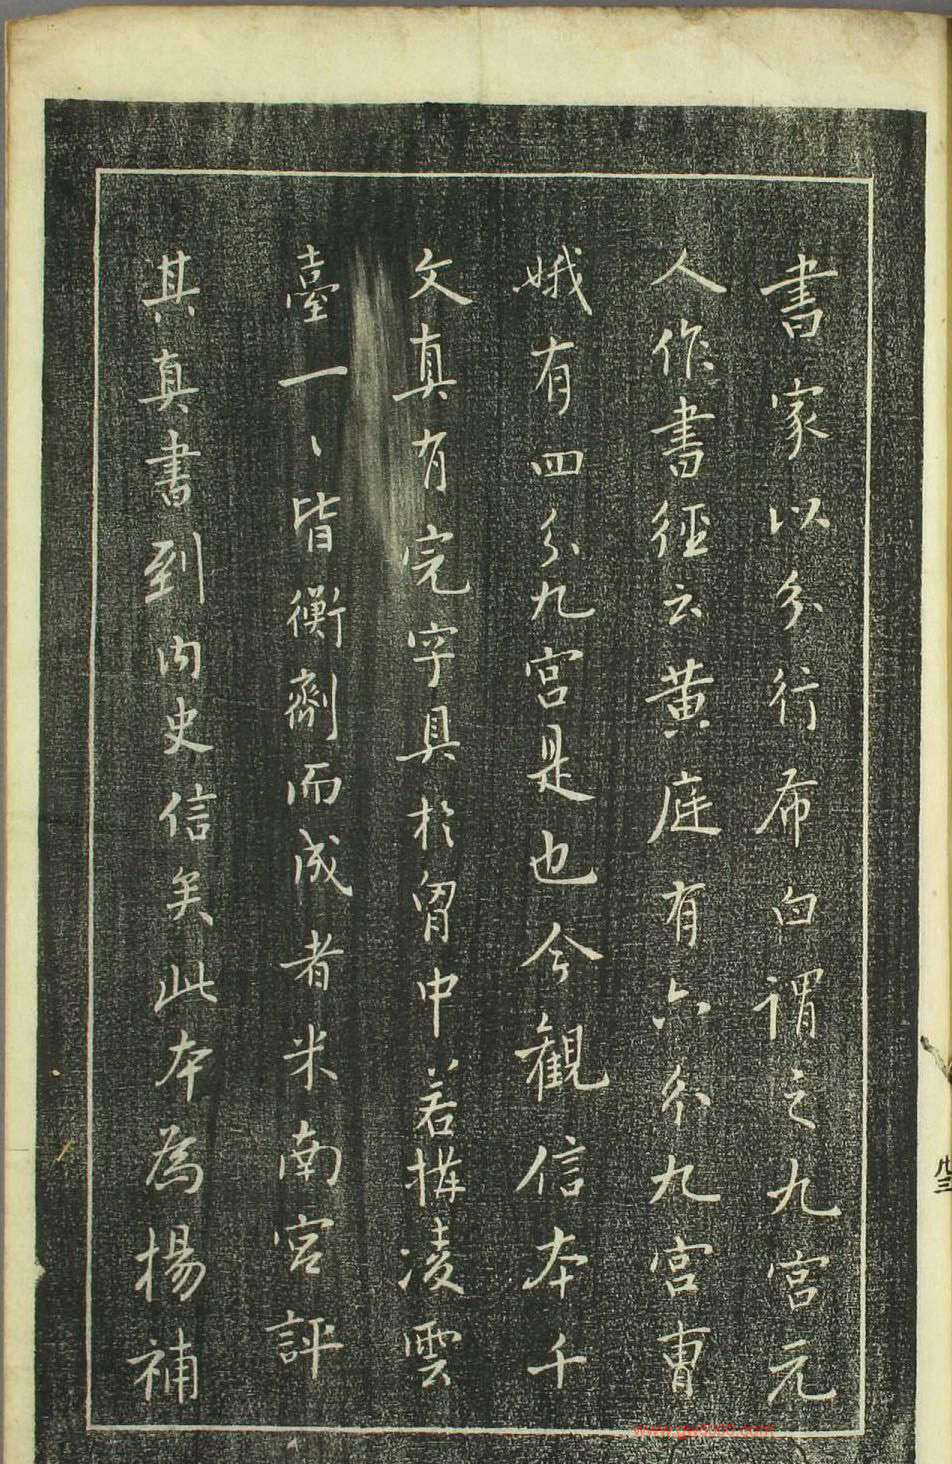 書家以分行布白謂之九宮元
人作書徑云黄庭有六分九宮曹
娥有四分九宮是也今觀信本千
文真有完字具於胷中若構凌雲
臺一〻皆衡劑而成者米南宮評
其真書到内史信矣此本為楊補
www.gw5000.com